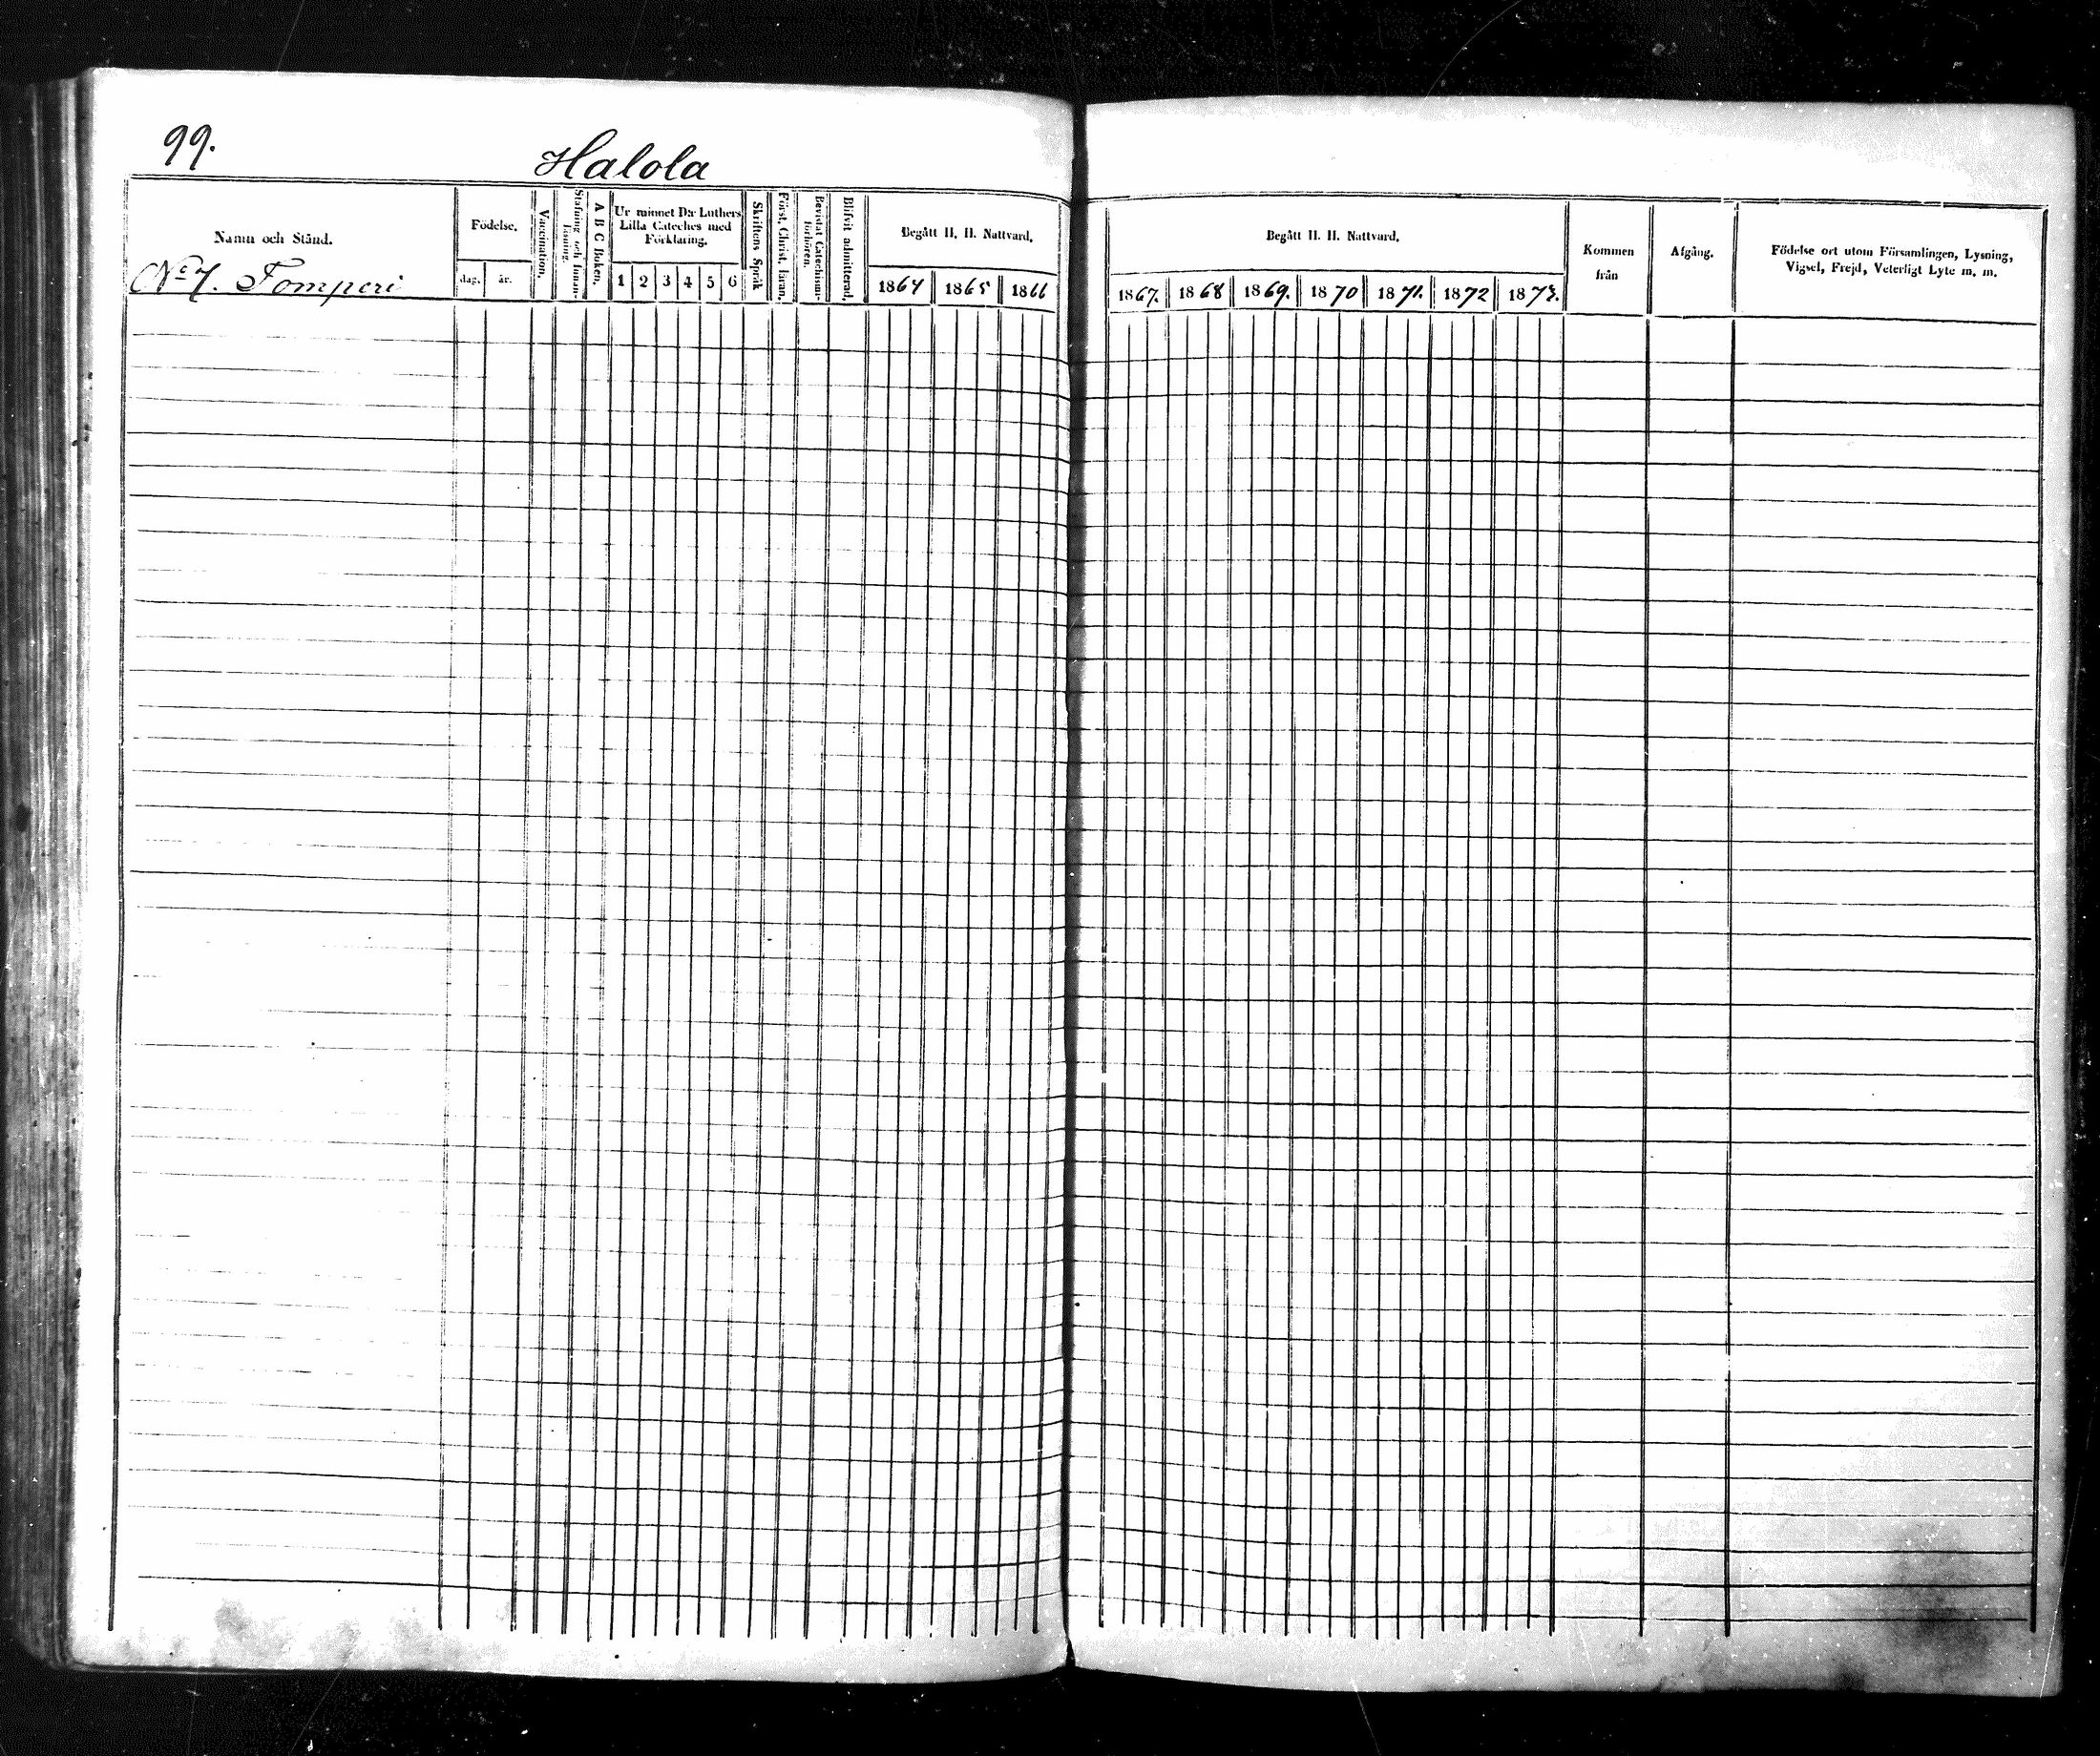 99.
Halola
Namn och Stånd.
No 7. Tomperi
Födelse.
dag. år.
Vaccination.
Stafning och Innan-
läsning.
A B C Boken.
Ur minnet D:r Luthers
Lilla Cateches med
Förklaring.
1 2 3 4 5 6
Skriftens Språk
Först. Christ. läran.
Bevistat Catechismi-
förhören.
Blifvit admitterad.
Begått H. H. Nattvard.
1864 1865 1866
Begått H. H. Nattvard.
1867. 1868 1869. 1870 1871. 1872 1873.
Kommen
från
Afgång.
Födelse ort utom Församlingen, Lysning,
Vigsel, Frejd, Veterligt Lyte m. m.